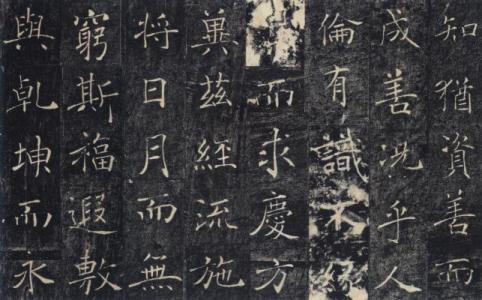 知猶資善而
成善況乎人
倫有識不緣
慶而求慶方
冀茲經流施
将日月而無
窮斯福遐敷
與乹坤而永